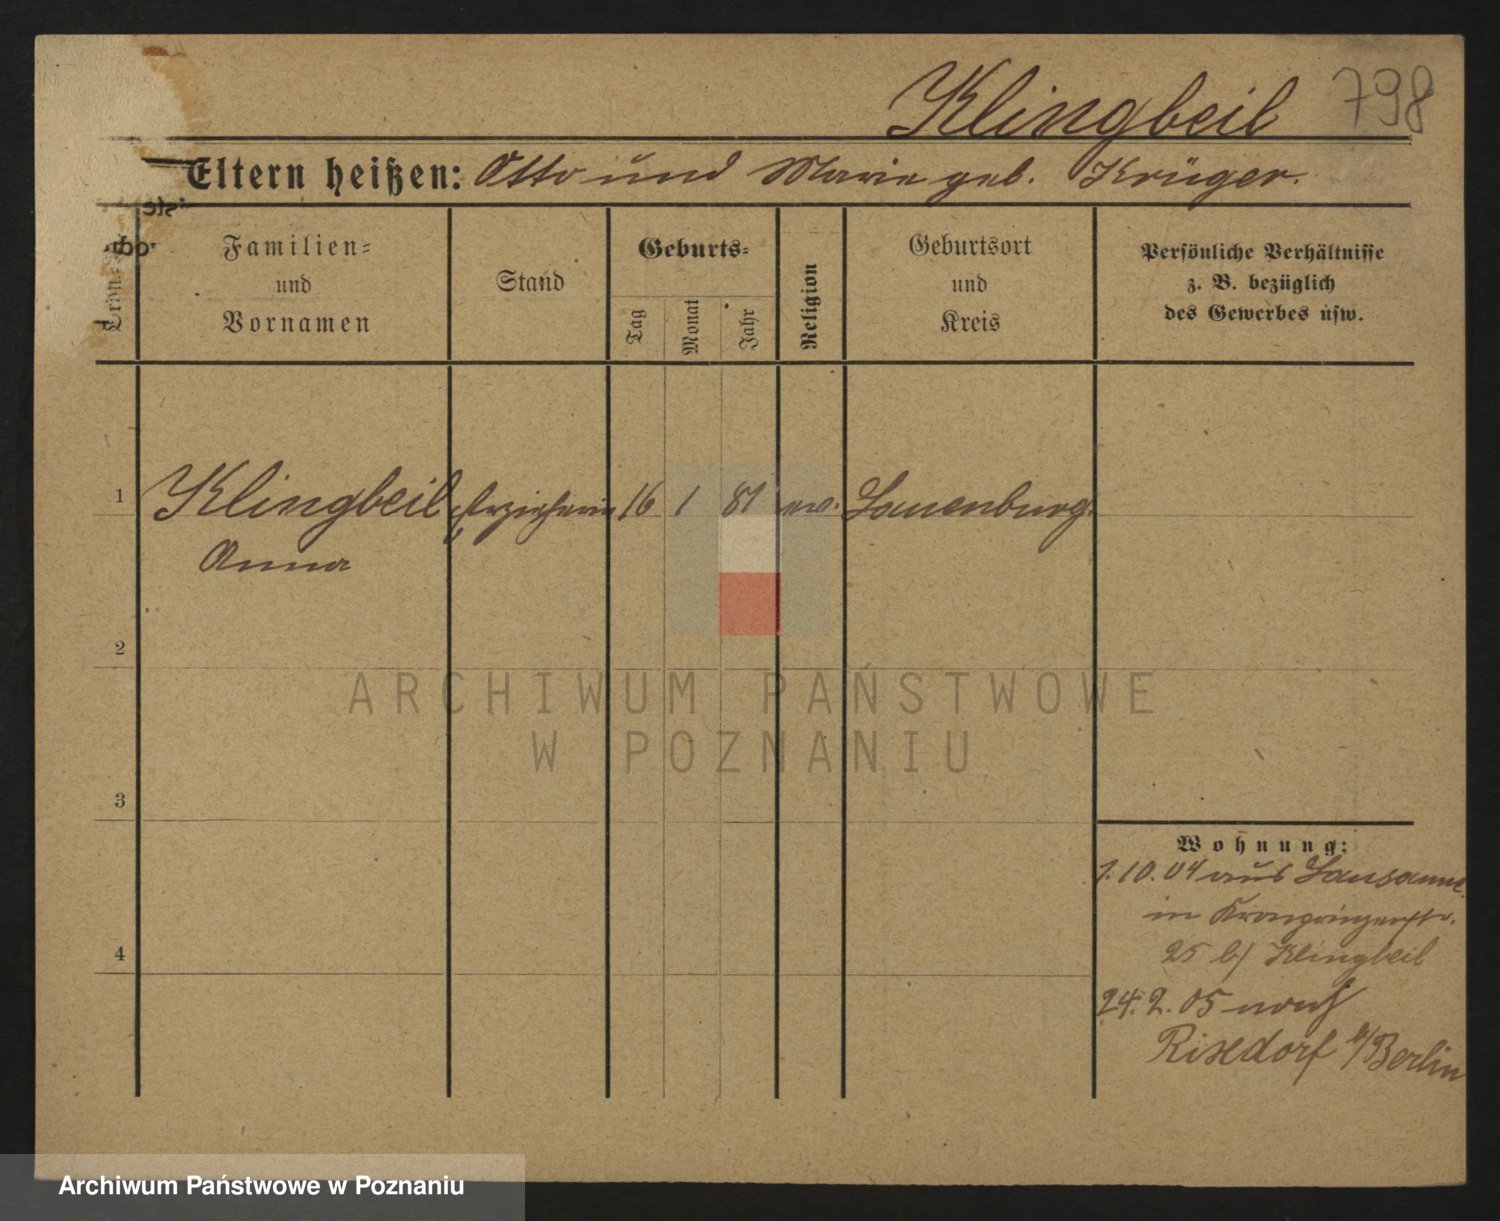 Klingbeil 798
Eltern heißen: Otto und Marie geb. Krüger.
Familien-
und
Vornamen
Stand
Geburts-
Tag
Monat
Jahr
Religion
Geburtsort
und
Kreis
Persönliche Verhältnisse
z. B. bezüglich
des Gewerbes usw.
1 Klingbeil Erzieherin 16 1 81 ev. Lauenburg.
Anna
2
3
4
Wohnung:
1.10.04 aus Lausanne
in Kronprinzenstr.
25 b/ Klingbeil
24.2.05 nach
Rixdorf b/Berlin
ARCHIWUM PAŃSTWOWE
W POZNANIU
Archiwum Państwowe w Poznaniu